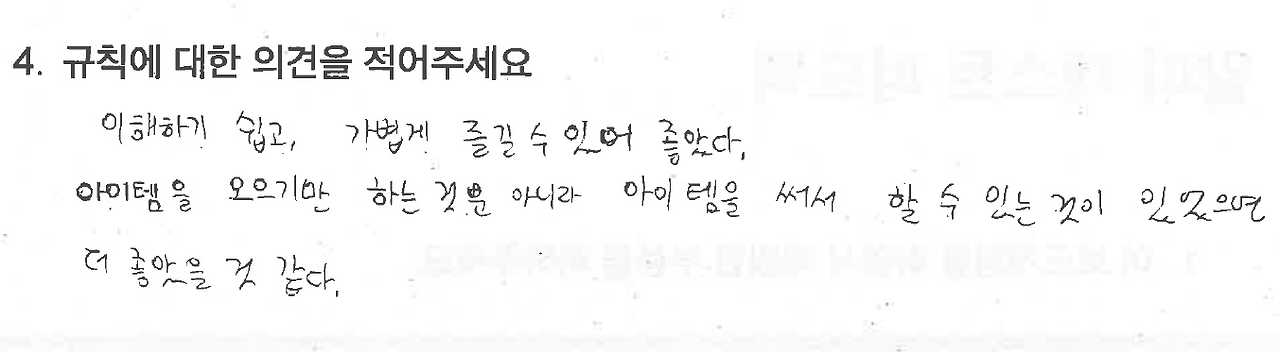 4. 규칙에 대한 의견을 적어주세요
이해하기 쉽고, 가볍게 즐길 수 있어 좋았다.
아이템을 모으기만 하는 것뿐 아니라 아이템을 써서 할 수 있는 것이 있었으면
더 좋았을 것 같다.